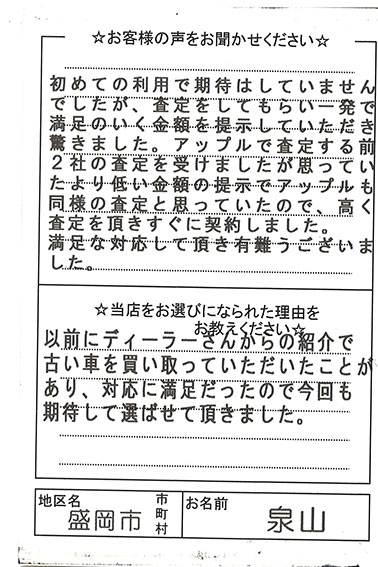 ☆お客様の声をお聞かせください☆
初めての利用で期待はしていません
でしたが、査定をしてもらい一発で
満足のいく金額を提示していただき
驚きました。アップルで査定する前
２社の査定を受けましたが思ってい
たより低い金額の提示でアップルも
同様の査定と思っていたので、高く
査定を頂きすぐに契約しました。
満足な対応して頂き有難うございま
した。
☆当店をお選びになられた理由を
お教えください☆
以前にディーラーさんからの紹介で
古い車を買い取っていただいたことが
あり、対応に満足だったので今回も
期待して選ばせて頂きました。
地区名 盛岡市 市町村 お名前 泉山